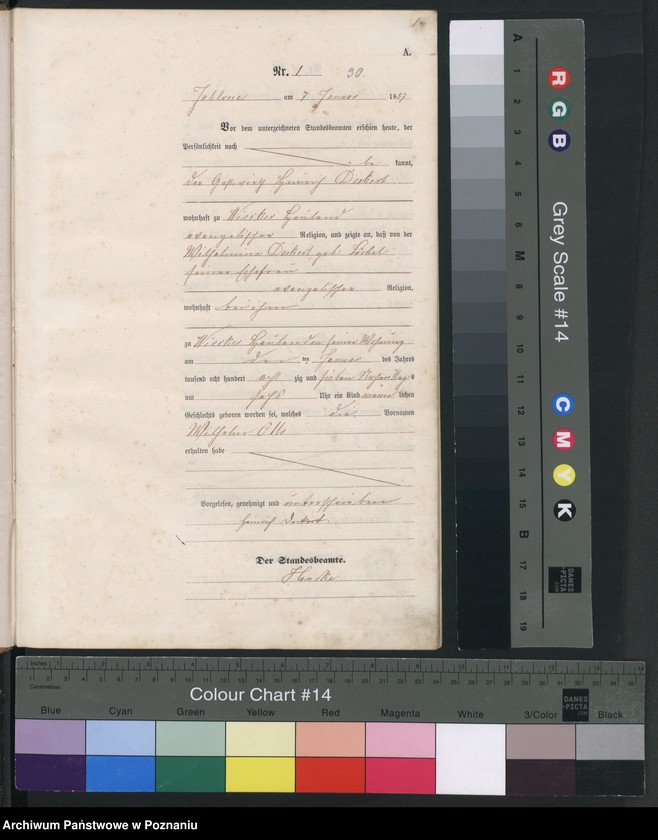 A.
Nr. 1 30
Jablone am 7 Januar 1887
Vor dem unterzeichneten Standesbeamten erschien heute, der
Persönlichkeit nach
be kannt,
der Heinrich Deckert
wohnhaft zu Hauland
evangelischer Religion, und zeigte an, daß von der
Wilhelmine Deckert geb.
seiner Ehefrau
evangelischer Religion,
wohnhaft bei ihm
zu Hauland in seiner Wohnung
am drei ten Januar des Jahres
tausend acht hundert acht zig und sieben Nachmittags
um sechs Uhr ein Kind männ lichen
Geschlechts geboren worden sei, welches die Vornamen
Wilhelm Otto
erhalten habe
Vorgelesen, genehmigt und unterschrieben
Heinrich Deckert
Der Standesbeamte.
A 1 2 3 4 5 6 M 8 9 10 11 12 13 14 15 B 17 18 19
R G B
Grey Scale #14
C M Y K
DANES
-PICTA
.COM
Inches
Centimetres
Colour Chart #14
DANES
-PICTA
.COM
Blue Cyan Green Yellow Red Magenta White 3/Color Black
Archiwum Państwowe w Poznaniu